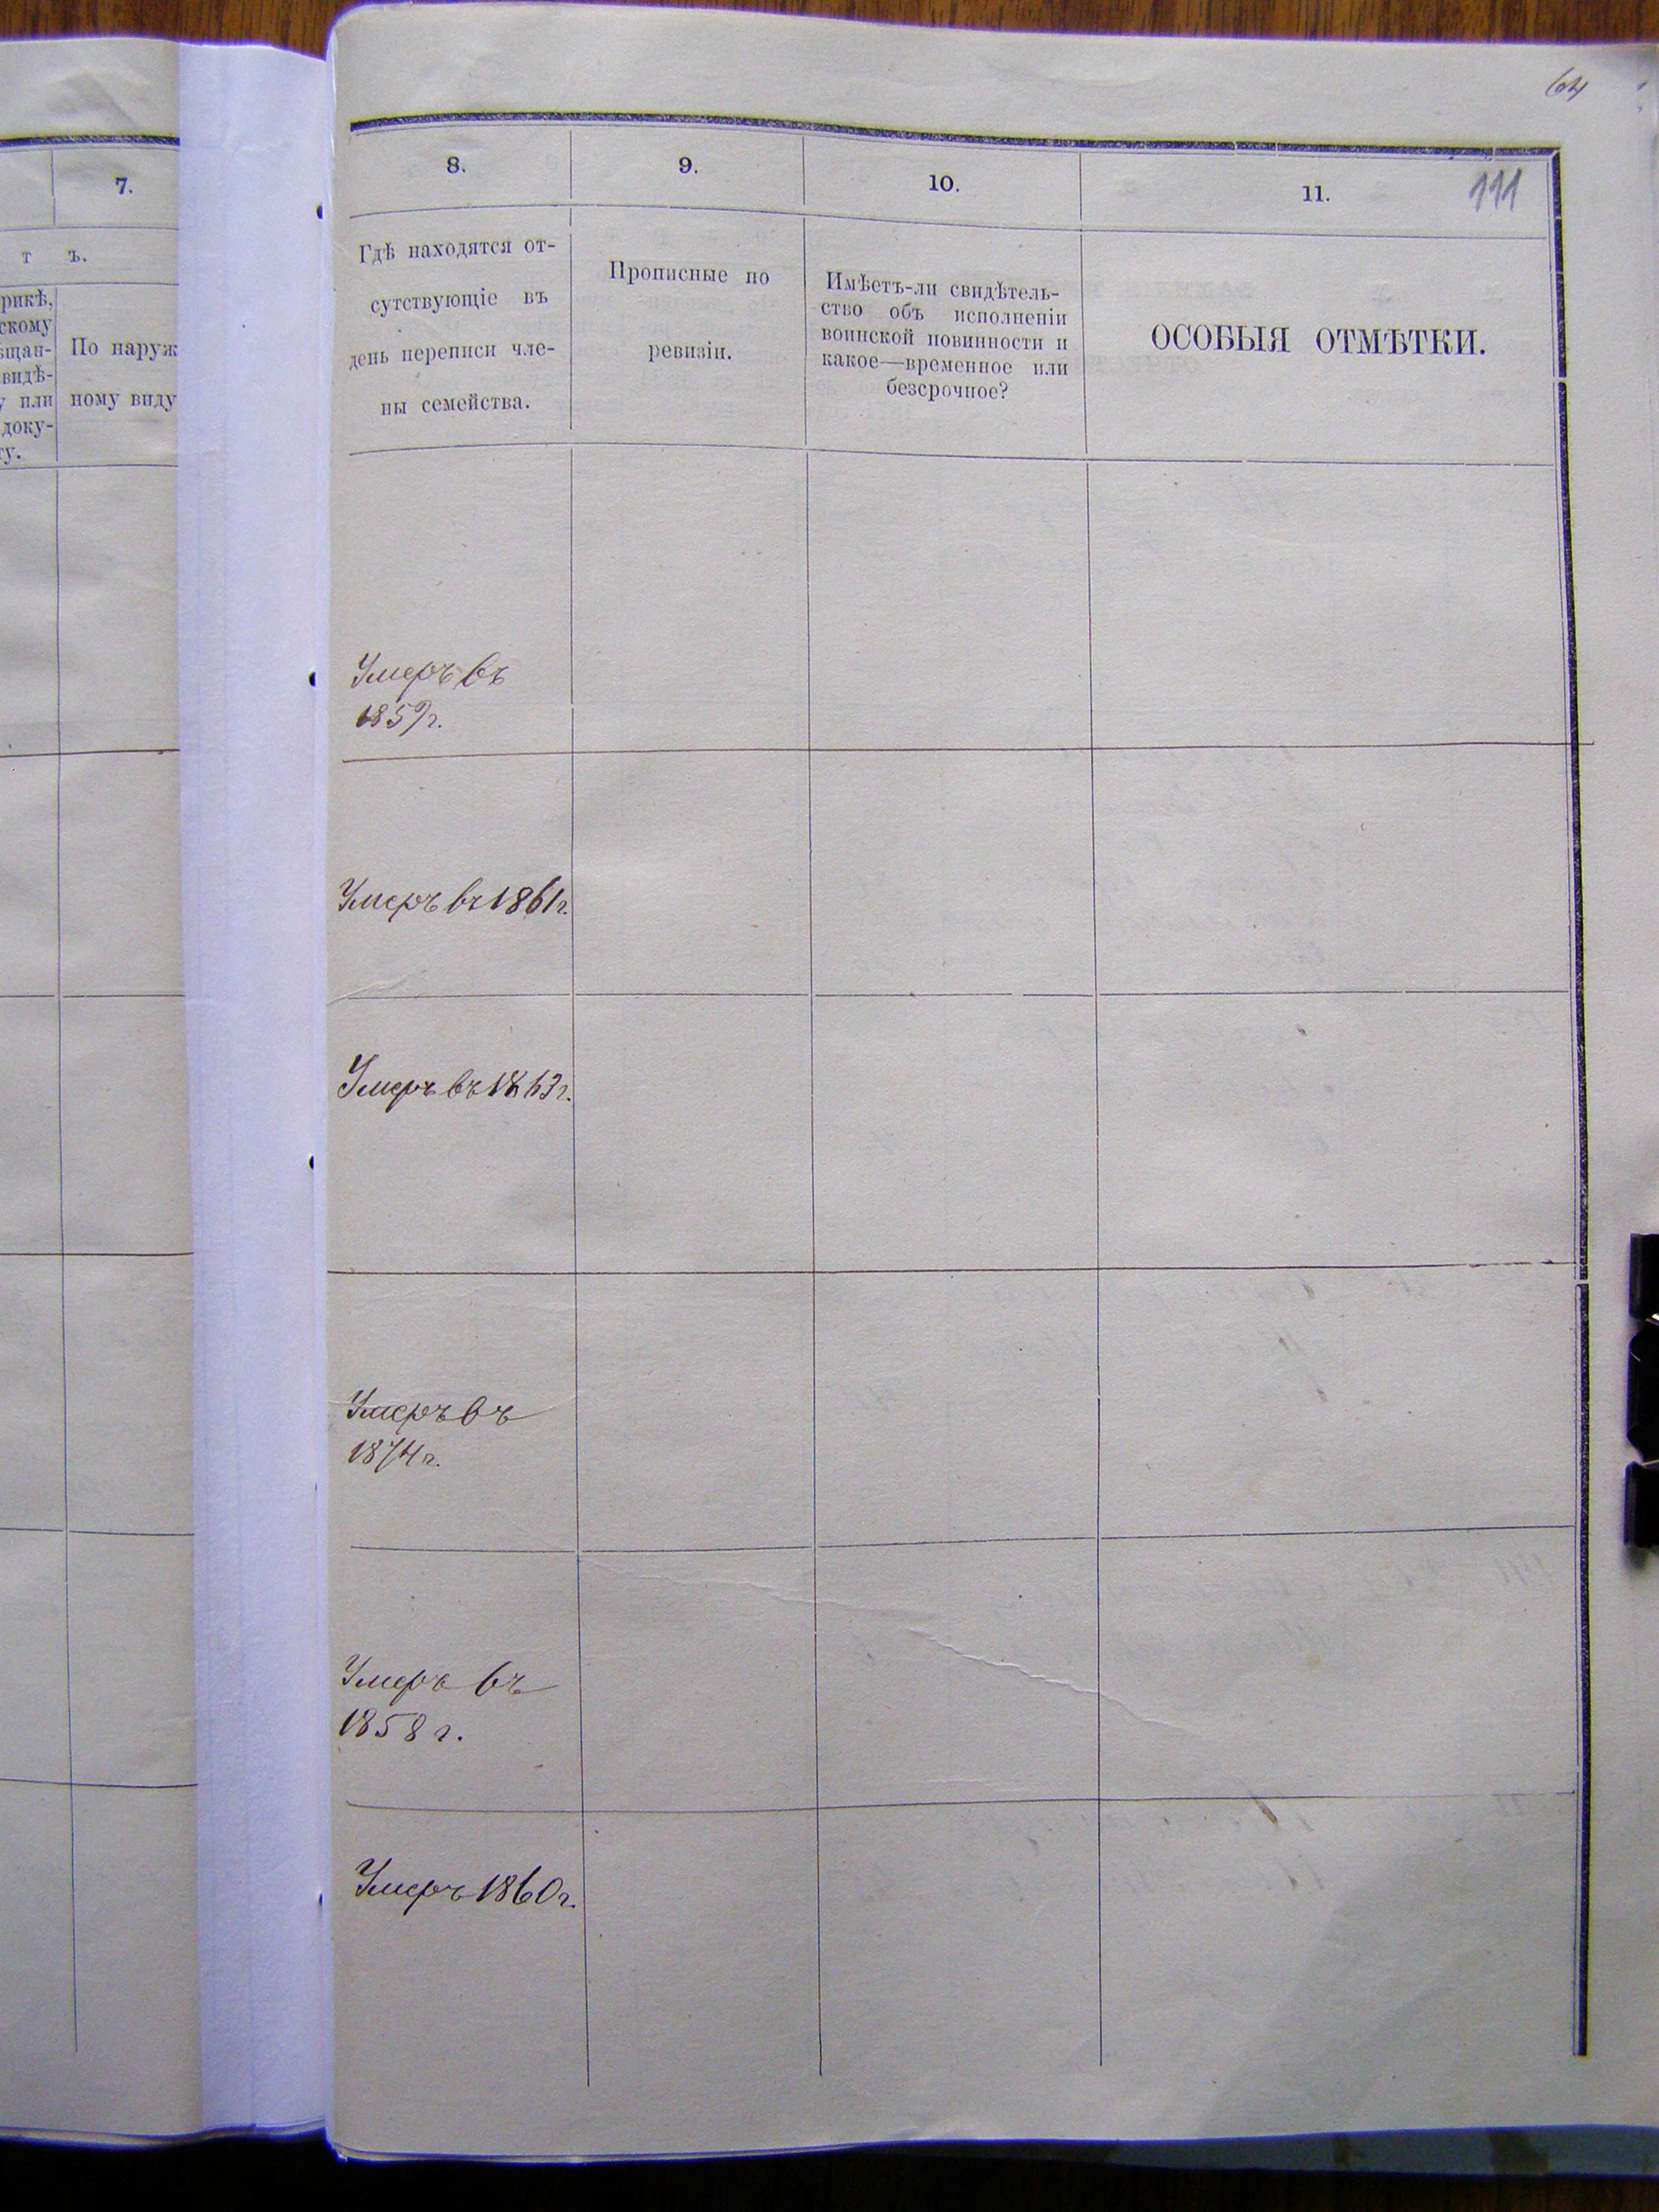 64
7.
т ъ.
рикѣ,
скому
щан-
видѣ-
у или
доку-
ту.
По наруж
ному виду
8.
9.
10.
11.
111
Гдѣ находятся от-
сутствующіе въ
день переписи чле-
ны семейства.
Прописные по
ревизіи.
Имѣетъ-ли свидѣтель-
ство объ исполненіи
воинской повинности и
какое—временное или
безсрочное?
ОСОБЫЯ ОТМѢТКИ.
Умеръ въ
1859г.
Умеръ въ 1861г.
Умеръ въ 1863г.
Умеръ въ
1874г.
Умеръ въ
1858 г.
Умеръ 1860г.